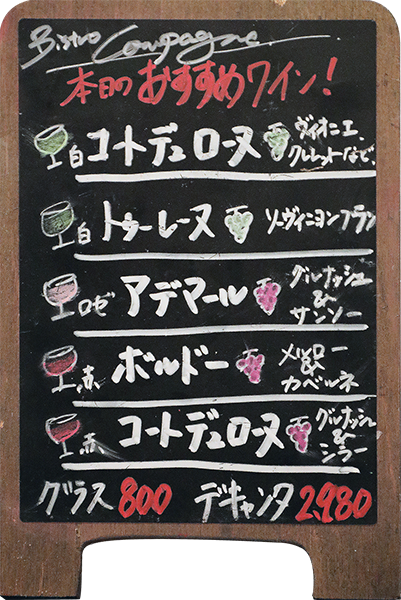 Bistro Compagne
本日のおすすめワイン!
白 コートデュローヌ ヴィオニエ
クレレットなど
白 トゥーレーヌ ソーヴィニヨンブラン
ロゼ アデマール グルナッシュ
&
サンソー
赤 ボルドー メルロー
&
カベルネ
赤 コートデュローヌ グルナッシュ
&
シラー
グラス 800 デキャンタ 2,980